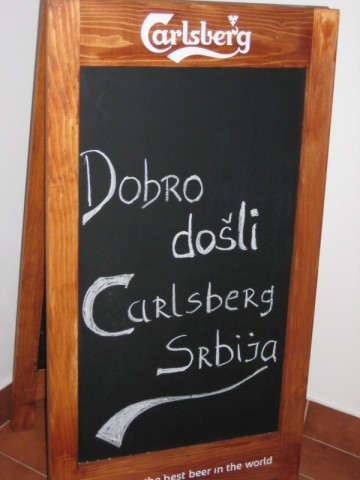 Carlsberg
Dobro
došli
Carlsberg
Srbija
the best beer in the world